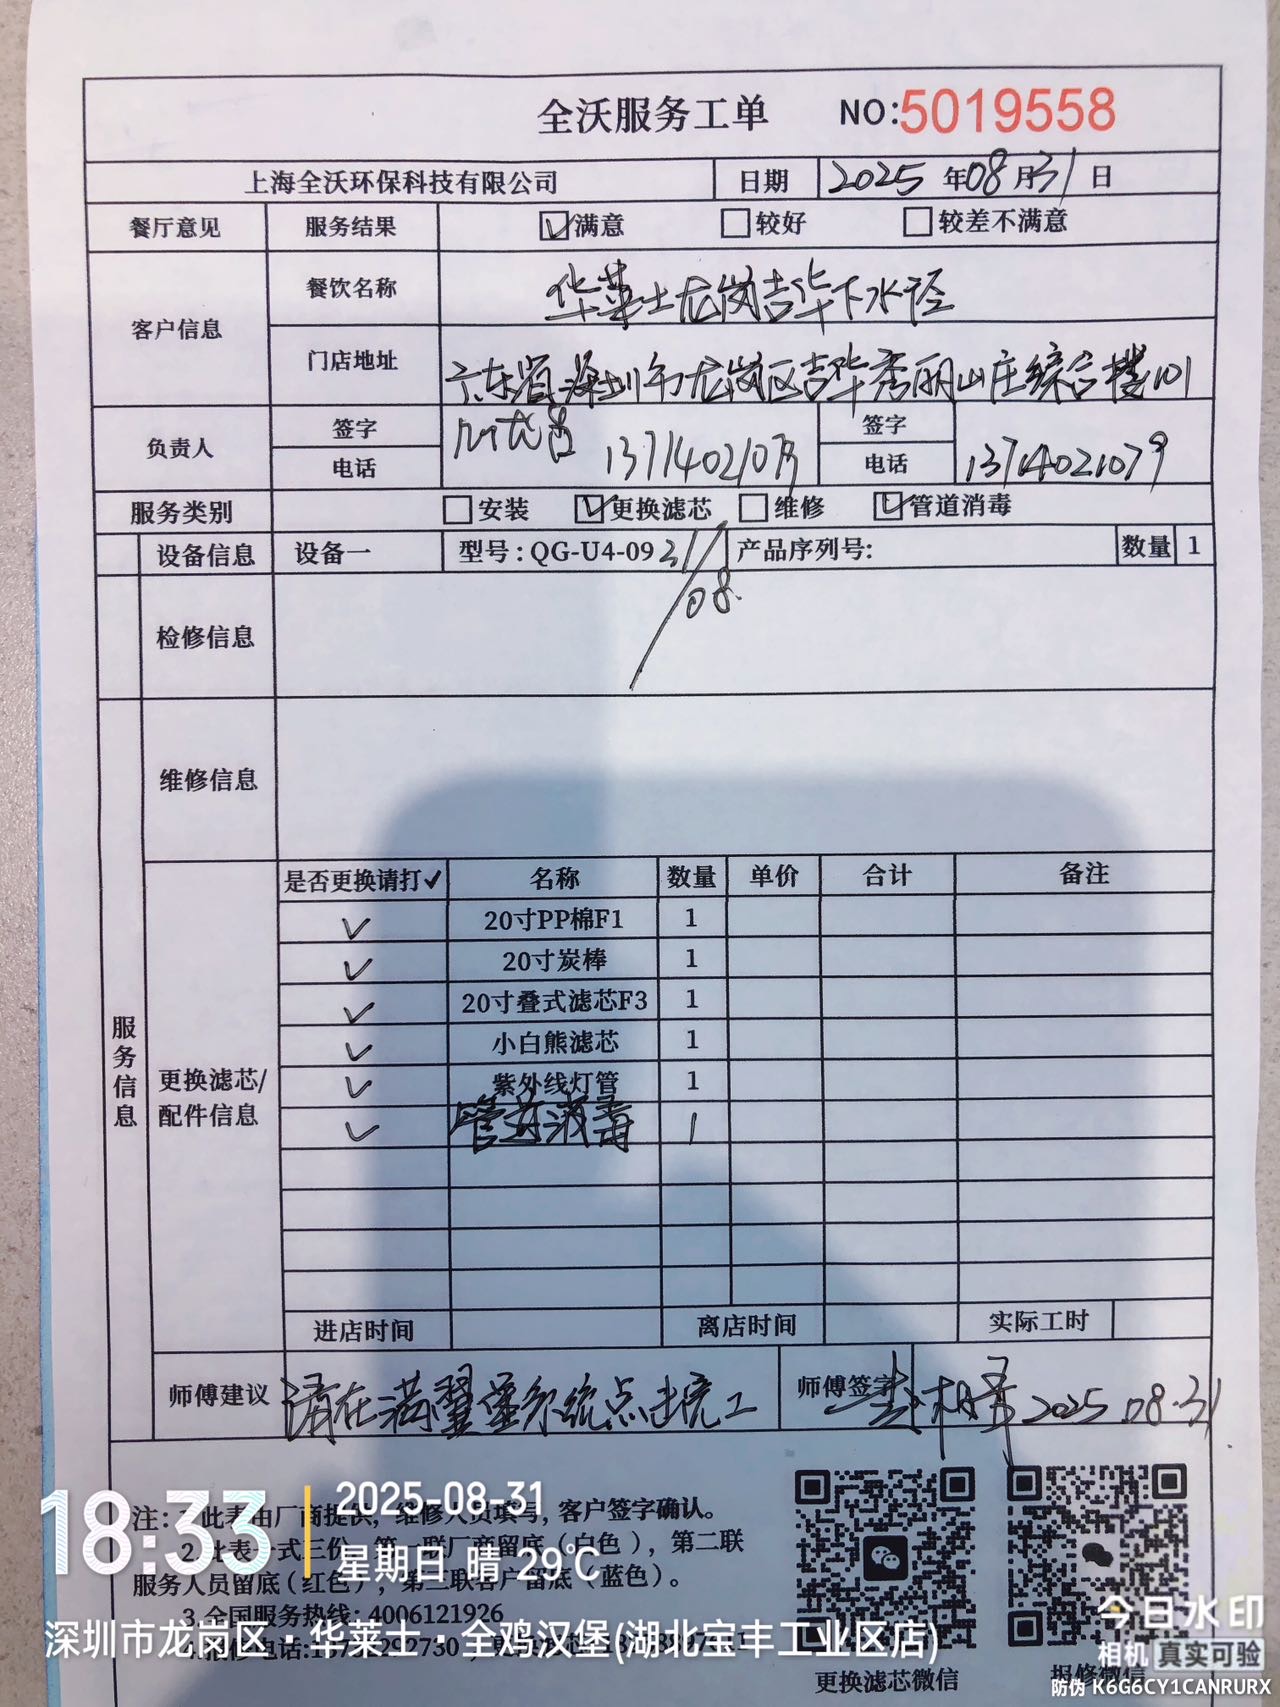 全沃服务工单 NO:5019558
上海全沃环保科技有限公司 日期 2025年08月31日
餐厅意见 服务结果 ☑满意 □较好 □较差不满意
客户信息 餐饮名称 华莱士龙岗吉华下水径
门店地址 广东省深圳市龙岗区吉华秀丽山庄综合楼101
负责人 签字 签字
电话 电话 13714021079
服务类别 □安装 ☑更换滤芯 □维修 ☑管道消毒
设备信息 设备一 型号:QG-U4-09 产品序列号: 数量 1
31/08
检修信息
维修信息
服务信息
更换滤芯/配件信息
是否更换请打✓ 名称 数量 单价 合计 备注
✓ 20寸PP棉F1 1
✓ 20寸炭棒 1
✓ 20寸叠式滤芯F3 1
✓ 小白熊滤芯 1
✓ 紫外线灯管 1
✓ 管道消毒 1
进店时间 离店时间 实际工时
师傅建议 请在满翼堡系统点击完工 师傅签字 2025.08.31
注: 此表由厂商提供, 维修人员填写, 客户签字确认。
2.此表一式三份, 第一联厂商留底(白色), 第二联
服务人员留底(红色), 第三联客户留底(蓝色)。
3.全国服务热线: 4006121926
更换滤芯微信 报修微信
18:33
2025-08-31
星期日 晴 29℃
深圳市龙岗区·华莱士·全鸡汉堡(湖北宝丰工业区店)
今日水印
相机 真实可验
防伪 K6G6CY1CANRURX